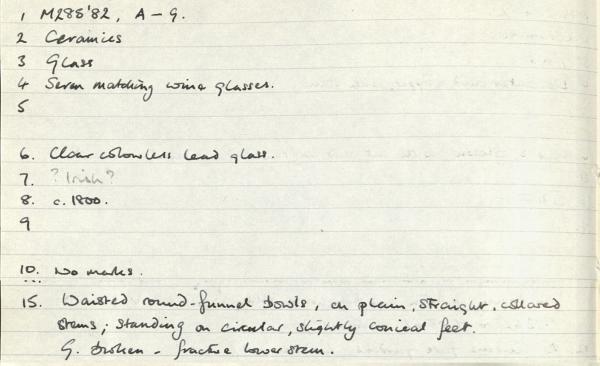 1 M288'82, A - G.
2 Ceramics
3 Glass
4 Seven matching wine glasses.
5
6. Clear colourless lead glass.
7. ? Irish ?
8. c. 1800.
9
10. No marks.
...
15. Waisted round-funnel bowls, on plain, straight, collared
stems; standing on circular, slightly conical feet.
G. broken - fracture lower stem.